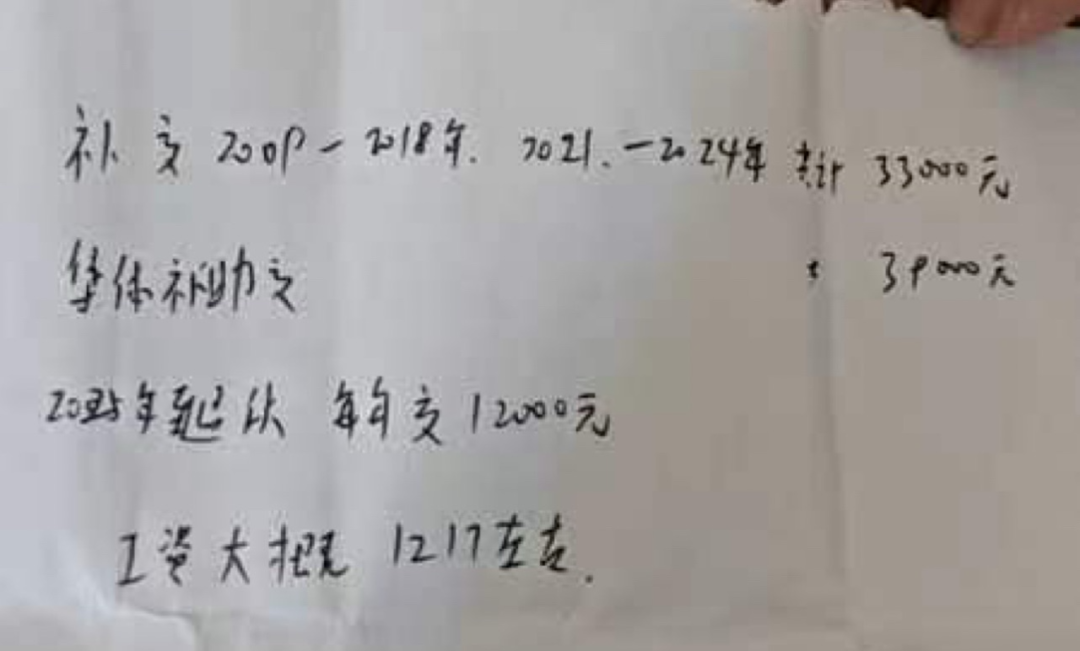 补交2009-2018年. 2021.-2024年 共计 33000元
集体补助交 39000元
年起 每年交12000元
工资大概 1217左右.